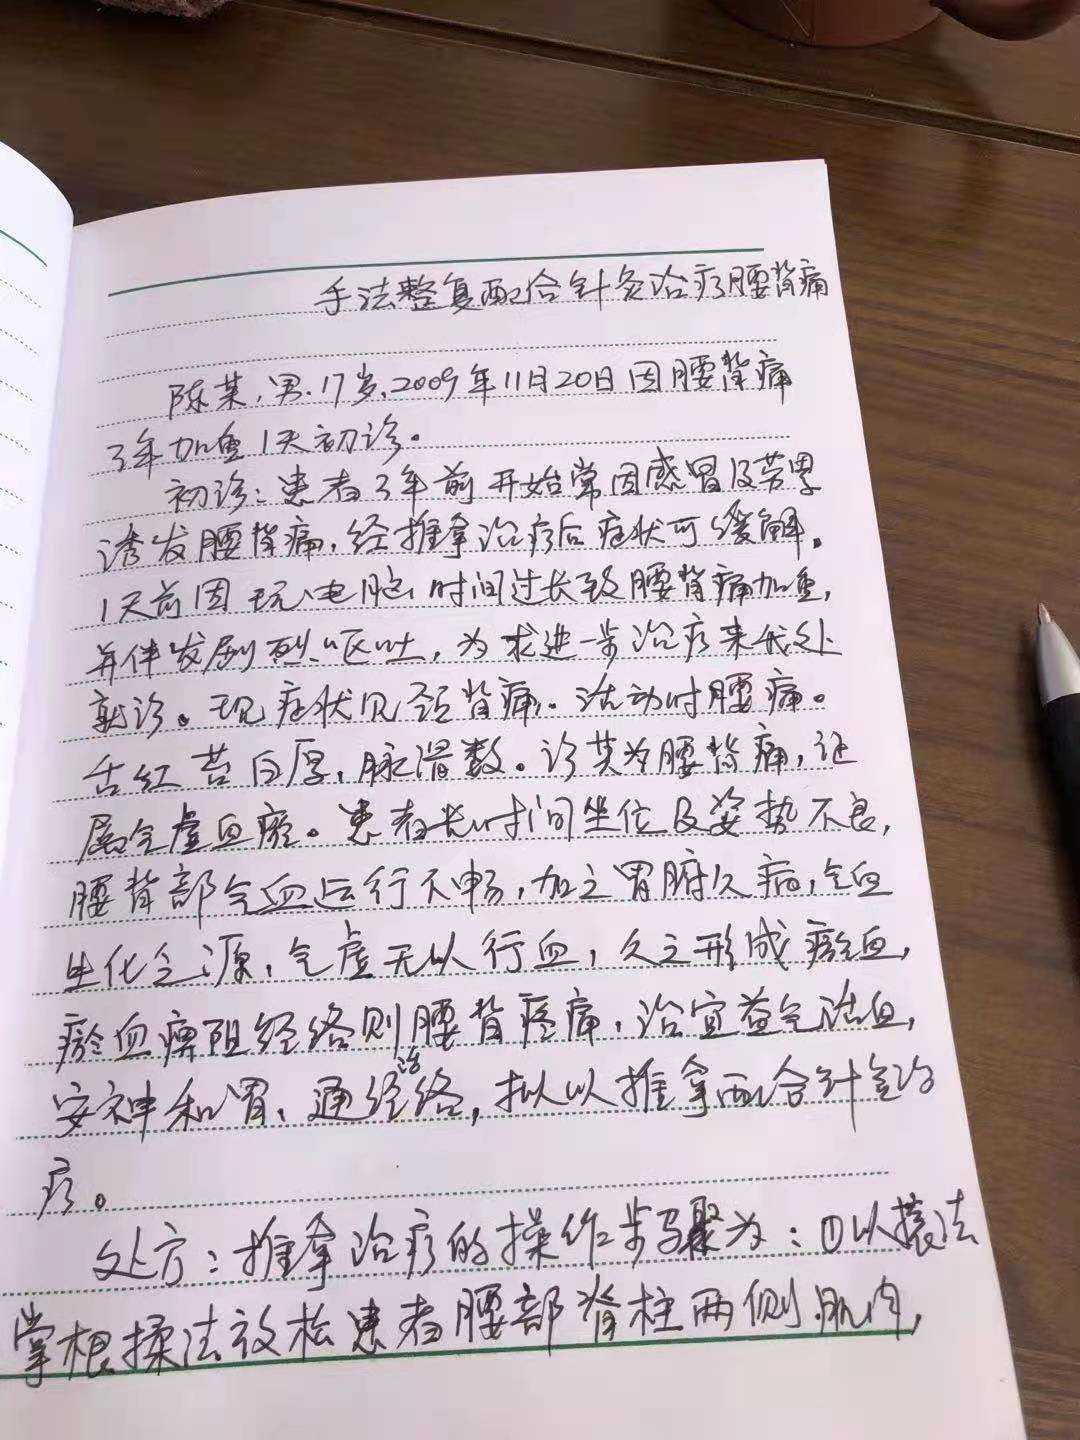 手法整复配合针灸治疗腰背痛
陈某,男.17岁,2009年11月20日因腰背痛
3年加重1天初诊。
初诊:患者3年前开始常因感冒及劳累
诱发腰背痛,经推拿治疗后症状可缓解。
1天前因玩电脑时间过长致腰背痛加重,
并伴发剧烈呕吐,为求进一步治疗来我处
就诊。现症状见颈背痛.活动时腰痛。
舌红苔白厚,脉滑数。诊其为腰背痛,证
属气虚血瘀。患者长时间坐位及姿势不良,
腰背部气血运行不畅,加之胃腑久病,气血
生化乏源,气虚无以行血,久之形成瘀血,
瘀血痹阻经络则腰背疼痛,治宜益气活血,
安神和胃、通经活络,拟以推拿配合针灸治
疗。
处方:推拿治疗的操作步骤聚为:①以㨰法
掌根揉法放松患者腰部脊柱两侧肌肉,